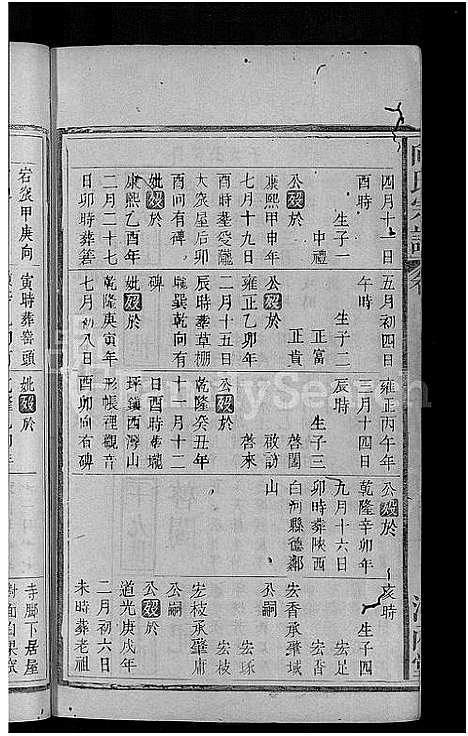 四月十一日
酉時
生子一
中禮
公殁於
康熙甲申年
七月十九日
酉時塟受蔭
大衆屋后卯
酉向有碑
妣殁於
康熙乙酉年
二月二十七
日卯時塟磜
五月初四日
午時
生子二
正富
正貴
公殁於
雍正乙卯年
二月十五日
辰時塟草棚
巽乾向有
碑
妣殁於
乾隆庚寅年
七月初八日
雍正丙午年
三月十四日
辰時
生子三
啓閶
啟訪
啓來
公殁於
乾隆癸丑年
十月十二
日酉時塟壠
坪鎮西灣山
形帳裡觀音
酉卯向有碑
公殁於
乾隆辛卯年
九月十六日
卯時葬陜西
白河縣德鄰
山
亥時
生子四
宏足
宏香
宏香承肇域
公嗣
宏枝
宏琢
宏枝承肇庸
公嗣
公殁於
道光庚戌年
二月初六日
未時葬老祖
甲庚向
寅時葬窑頭
妣殁於
寺脚下居屋